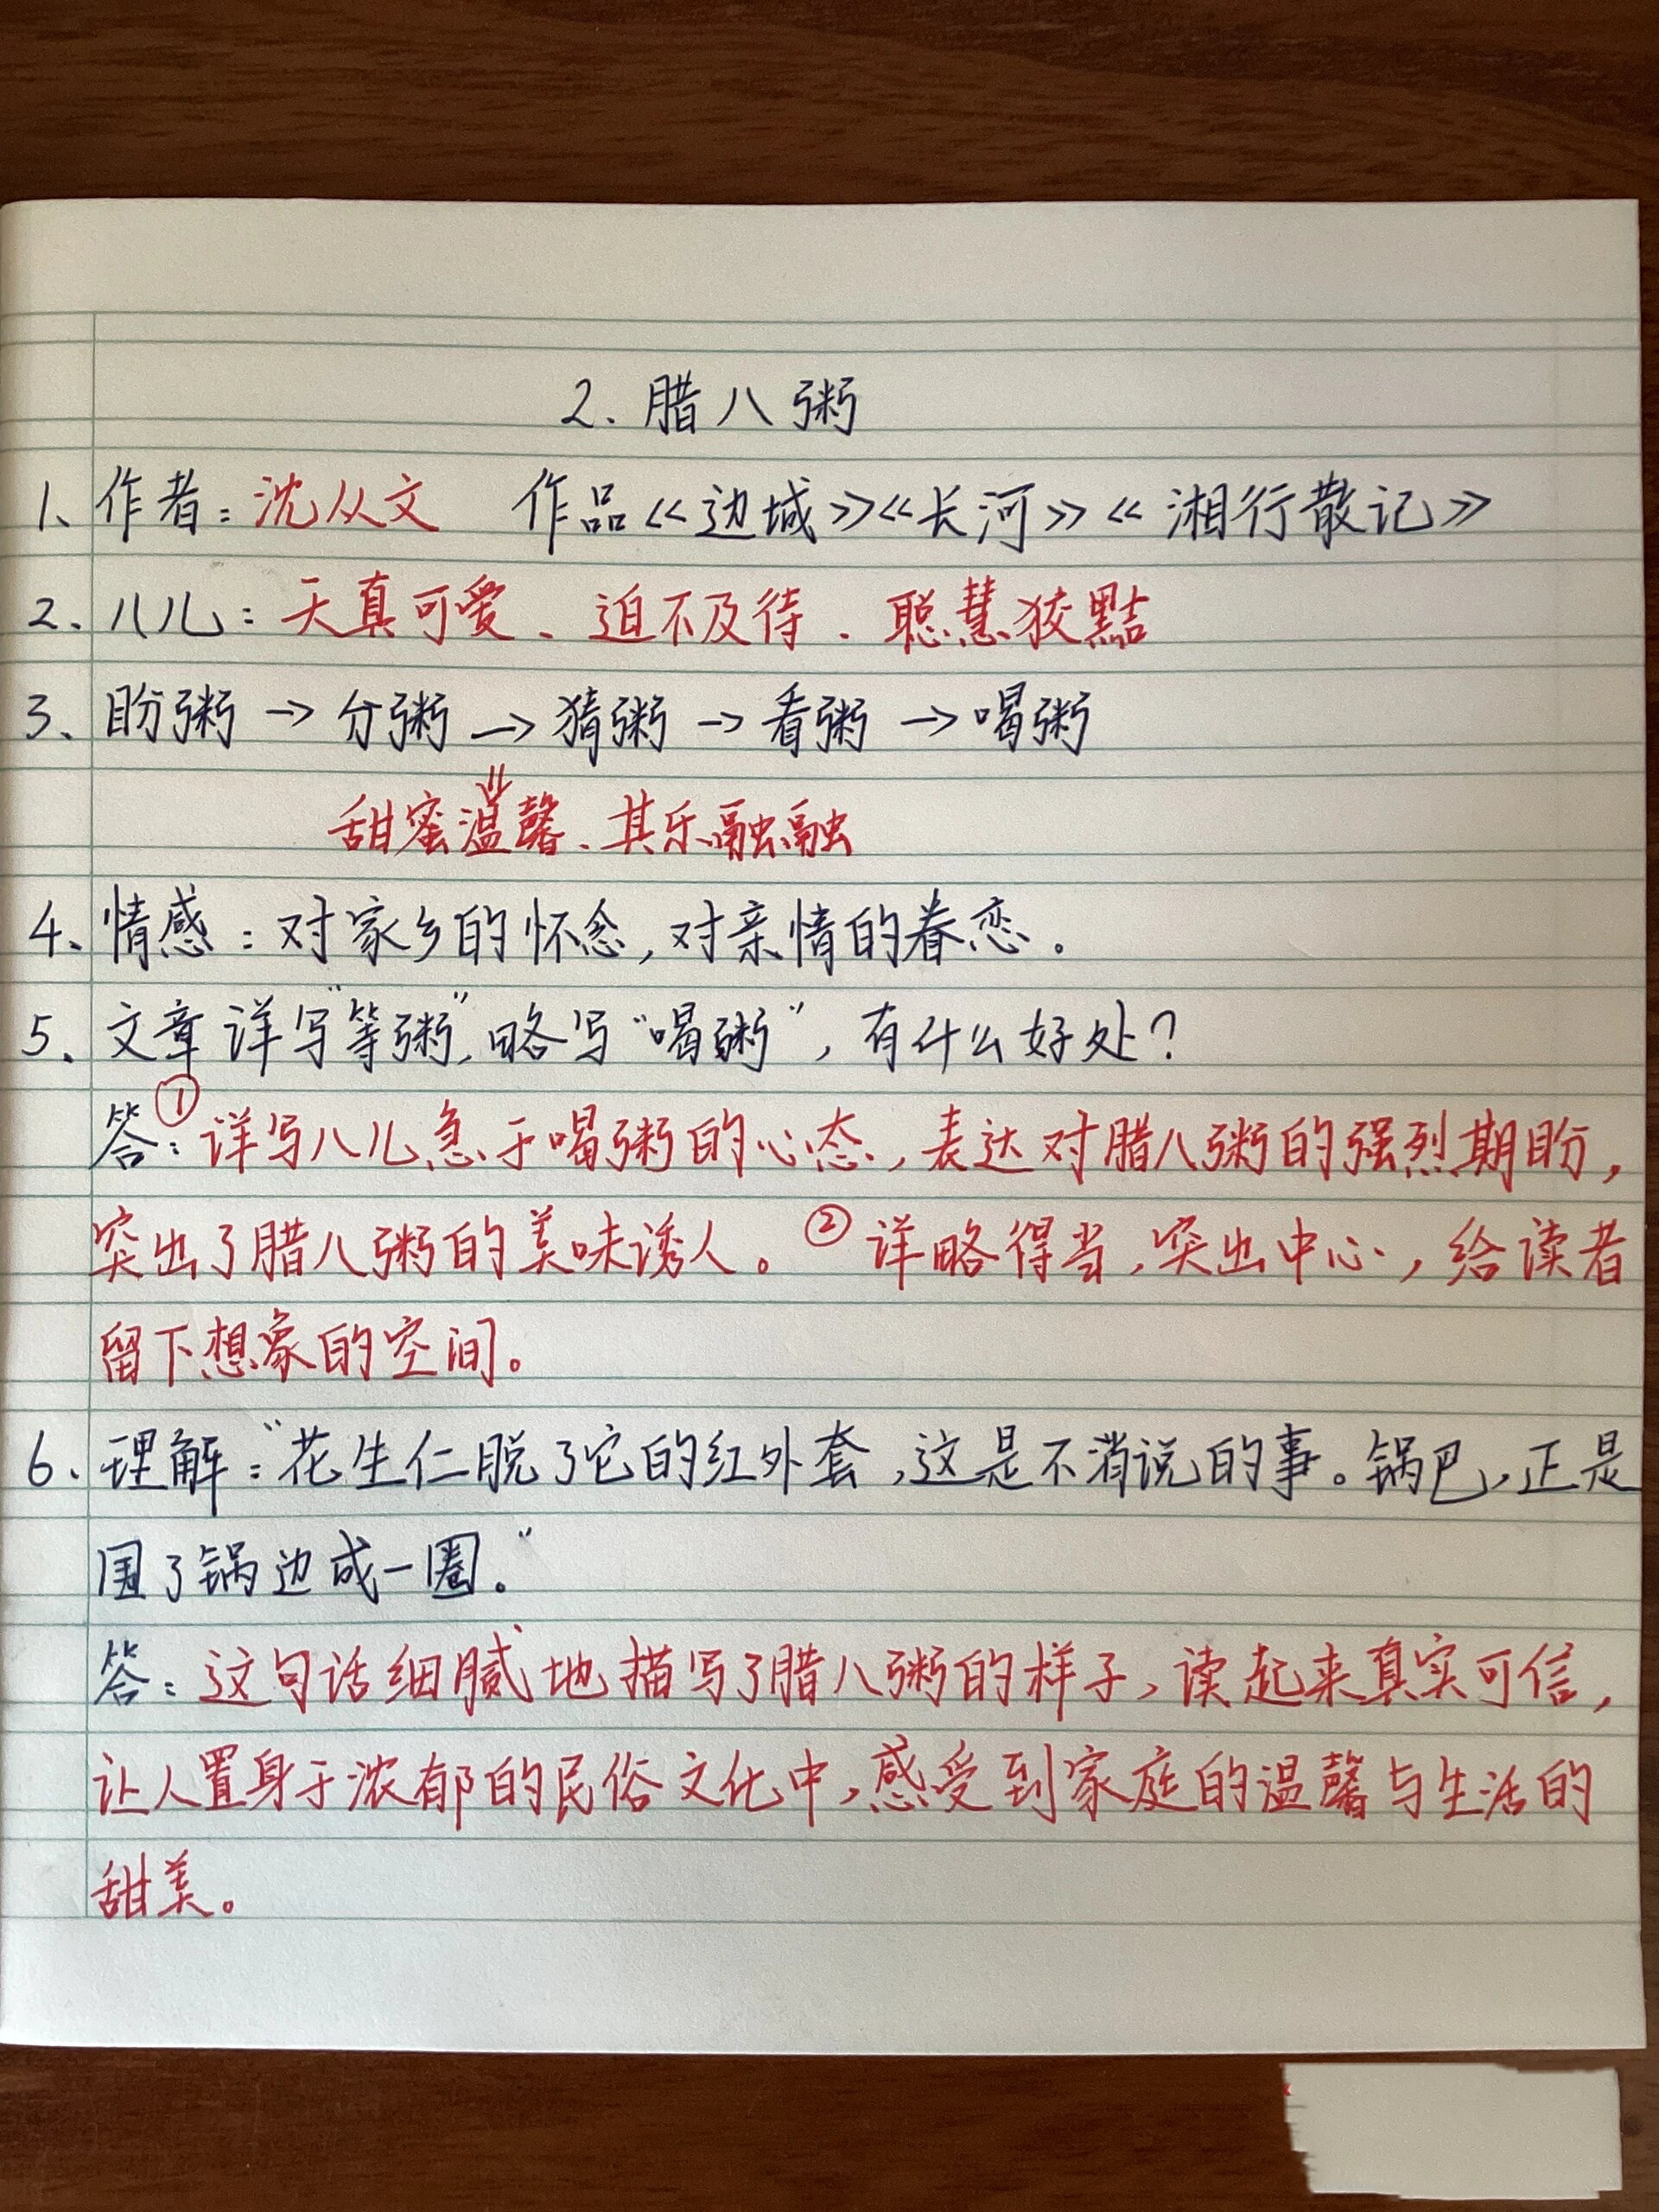 2. 腊八粥
1、作者：沈从文 作品《边城》《长河》《湘行散记》
2、八儿：天真可爱、迫不及待、聪慧狡黠
3、盼粥→分粥→猜粥→看粥→喝粥
甜蜜温馨、其乐融融
4、情感：对家乡的怀念，对亲情的眷恋。
5、文章详写“等粥”，略写“喝粥”，有什么好处？
答：①详写八儿急于喝粥的心态，表达对腊八粥的强烈期盼，
突出了腊八粥的美味诱人。②详略得当，突出中心，给读者
留下想象的空间。
6、理解：“花生仁脱了它的红外套，这是不消说的事。锅巴，正是
围了锅边成一圈。”
答：这句话细腻地描写了腊八粥的样子，读起来真实可信，
让人置身于浓郁的民俗文化中，感受到家庭的温馨与生活的
甜美。